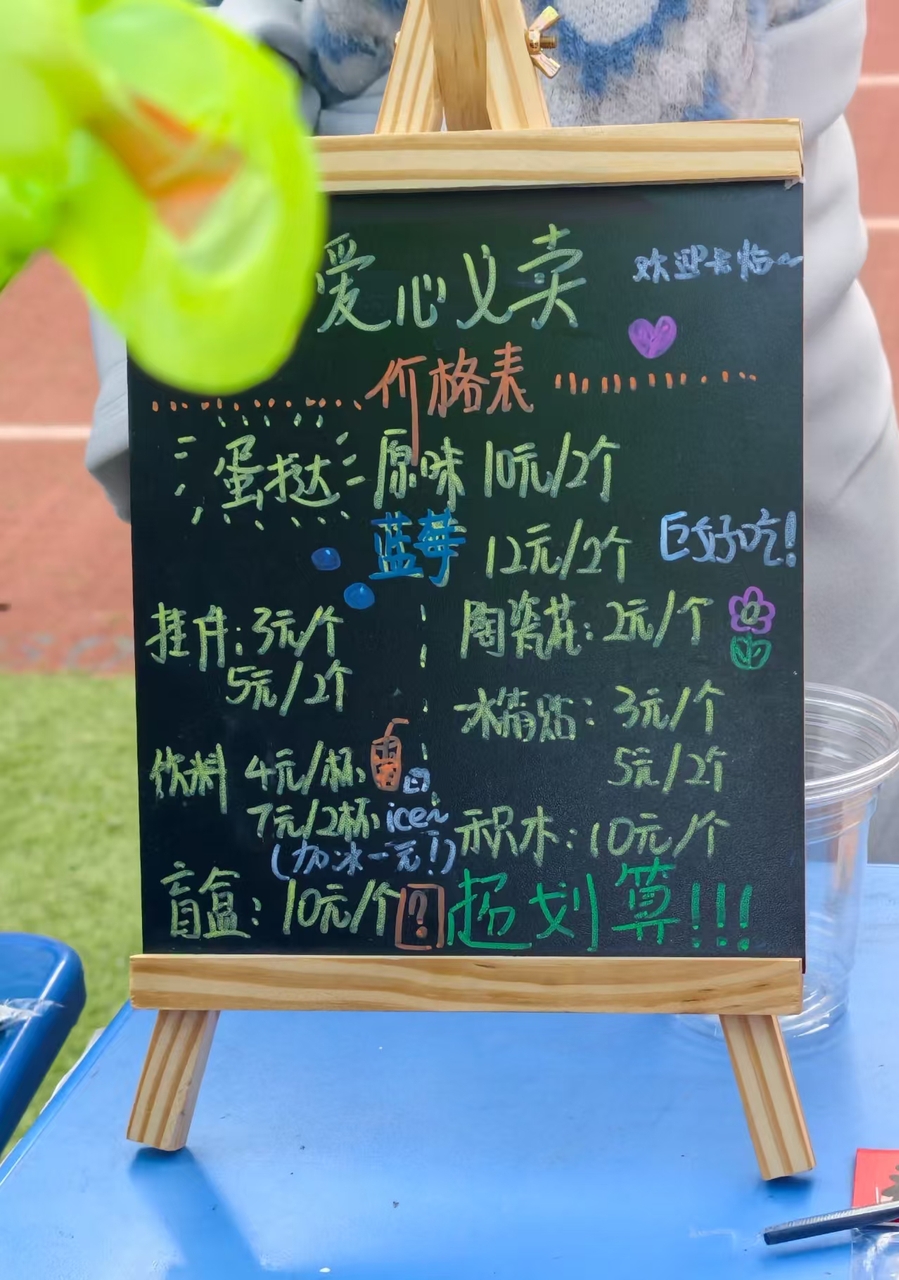 爱心义卖
欢迎光临~
价格表
蛋挞 原味 10元/2个
蓝莓 12元/2个
巨好吃!
挂件:3元/个
5元/2个
陶瓷花:2元/个
冰箱贴:3元/个
5元/2个
饮料 4元/杯
7元/2杯 ice~
(加冰一元!)
积木:10元/个
盲盒:10元/个 ?
超划算!!!